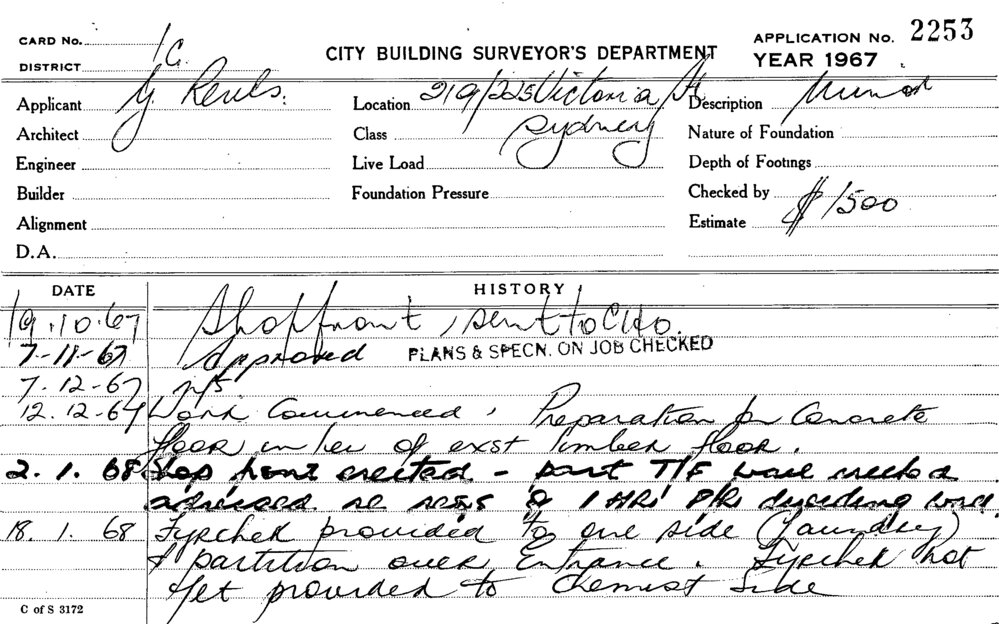 CARD No. 1C.
CITY BUILDING SURVEYOR'S DEPARTMENT
APPLICATION No. 2253
DISTRICT
YEAR 1967
Applicant Location 219/225 Victoria St Description
Architect Class Sydney Nature of Foundation
Engineer Live Load Depth of Footings
Builder Foundation Pressure Checked by
Alignment Estimate $1500
D.A.
DATE HISTORY
19.10.67 Shopfront, sent to CHO.
7-11-67 Approved PLANS & SPECN. ON JOB CHECKED
7.12-67 n/s
12.12-67 Work Commenced. Preparation for Concrete
floor in lieu of exst timber floor.
2.1.68 Shop front erected - part T/F wall erected
advised re 1 HR F/R dividing wall.
18.1.68 Fyrchek provided to one side (Laundry)
& partition over Entrance. Fyrchek not
yet provided to Chemist Side
C of S 3172